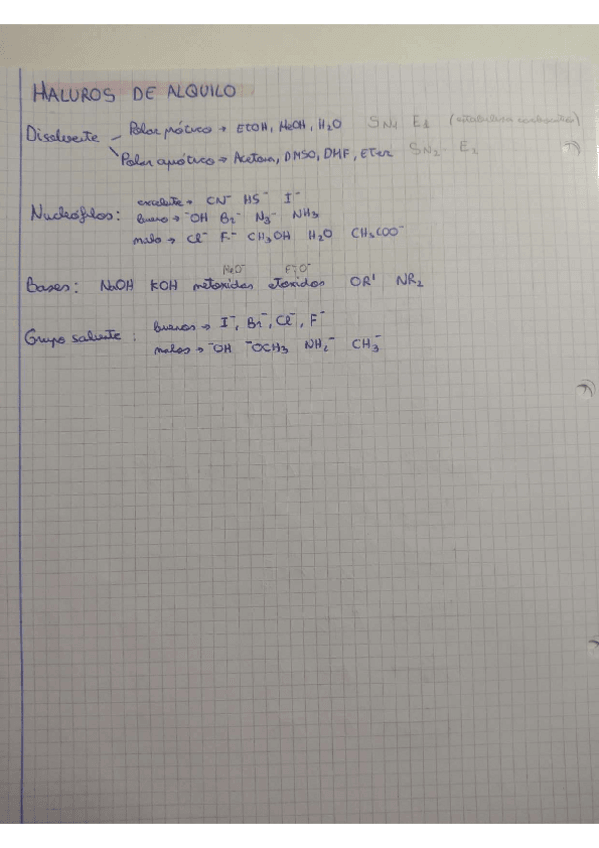 HALUROS DE ALQUILO
Disolvente – Polar prótico → EtOH, MeOH, H2O SN1 E1 (estabilizan carbocatión)
Polar aprótico → Acetona, DMSO, DMF, Eter SN2 - E2
Nucleófilos: excelente → CN⁻ HS⁻ I⁻
bueno → ⁻OH Br⁻ N3⁻ NH3
malo → Cl⁻ F⁻ CH3OH H2O CH3COO⁻
MeO⁻ EtO⁻
Bases: NaOH KOH metoxidos etoxidos OR' NR2
Grupo saliente: buenos → I⁻, Br⁻, Cl⁻, F⁻
malos → ⁻OH ⁻OCH3 NH2⁻ CH3⁻